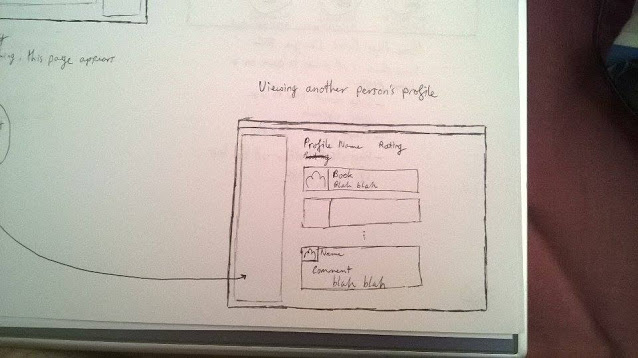 this page appears
Viewing another person's profile
Profile Name Rating
Rating
Book
Blah blah
Name
Comment
blah blah